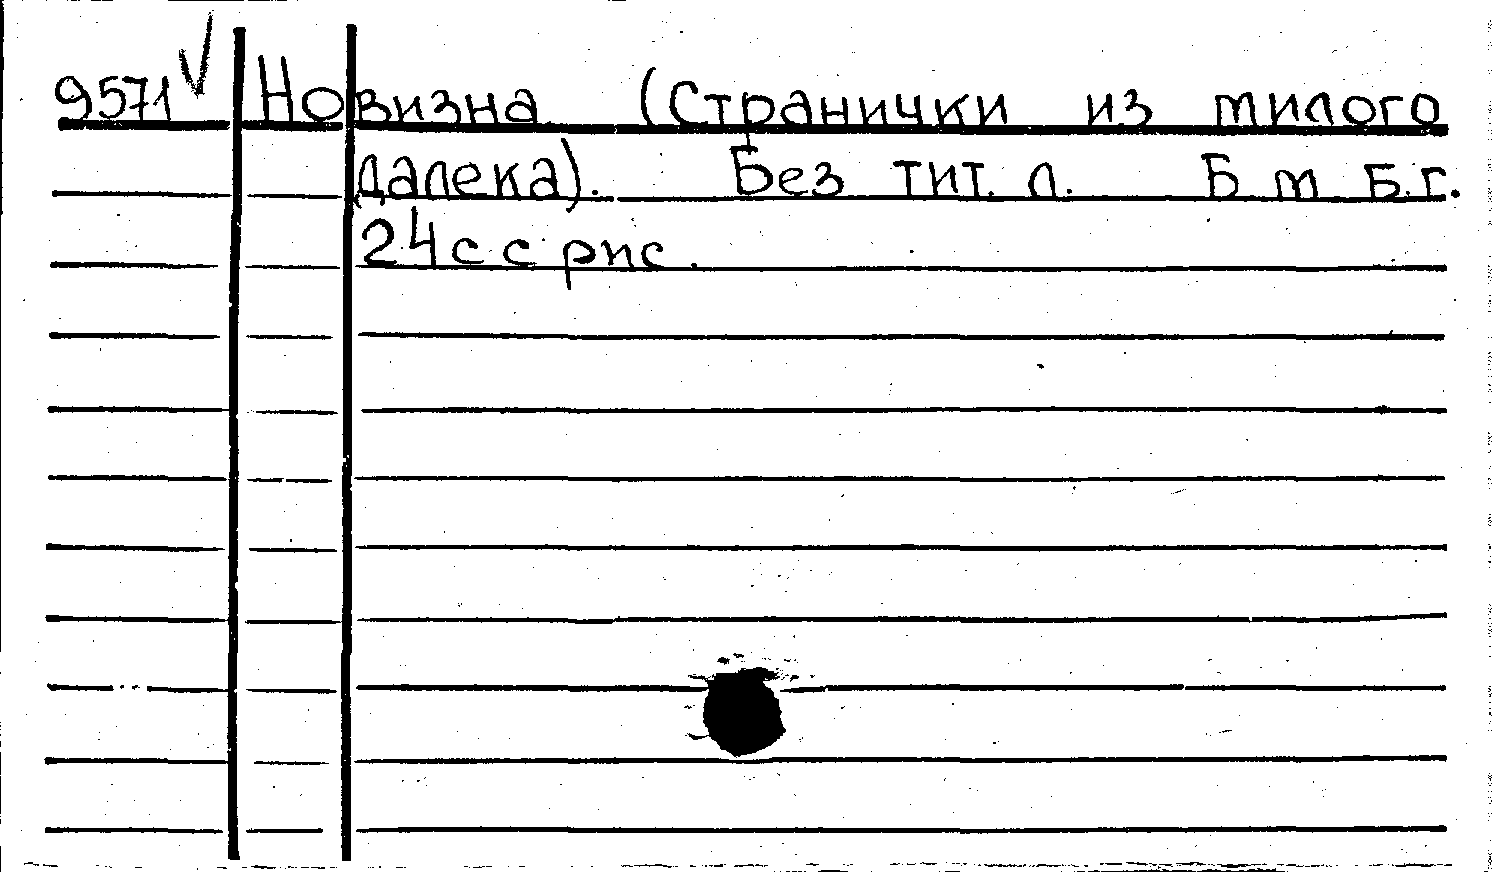 9571 Новизна (Странички из милого
далека). Без тит. л. Б м Б.г.
24 с с рис.